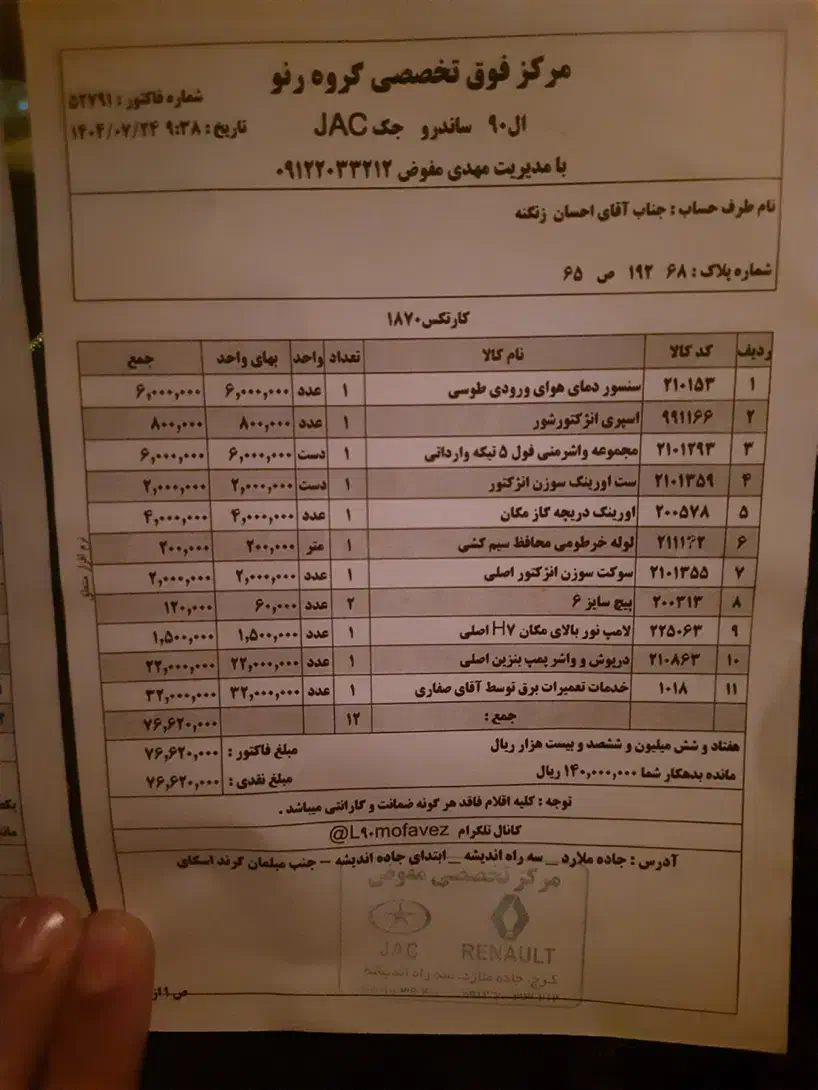 مرکز فوق تخصصی گروه رنو
شماره فاکتور : ۵۲۷۹۱
ال۹۰ ساندرو جک JAC
تاریخ : ۹:۳۸ ۱۴۰۴/۰۷/۲۴
با مدیریت مهدی مفوض ۰۹۱۲۲۰۳۳۲۱۲
نام طرف حساب : جناب آقای احسان زنگنه
شماره پلاک : ۶۸ ۱۹۲ ص ۶۵
کارتکس۱۸۷۰
ردیف کد کالا نام کالا تعداد واحد بهای واحد جمع
۱ ۲۱۰۱۵۳ سنسور دمای هوای ورودی طوسی ۱ عدد ۶,۰۰۰,۰۰۰ ۶,۰۰۰,۰۰۰
۲ ۹۹۱۱۶۶ اسپری انژکتورشور ۱ عدد ۸۰۰,۰۰۰ ۸۰۰,۰۰۰
۳ ۲۱۰۱۲۹۳ مجموعه واشرمنی فول ۵ تیکه وارداتی ۱ دست ۶,۰۰۰,۰۰۰ ۶,۰۰۰,۰۰۰
۴ ۲۱۰۱۳۵۹ ست اورینگ سوزن انژکتور ۱ دست ۲,۰۰۰,۰۰۰ ۲,۰۰۰,۰۰۰
۵ ۲۰۰۵۷۸ اورینگ دریچه گاز مگان ۱ عدد ۴,۰۰۰,۰۰۰ ۴,۰۰۰,۰۰۰
۶ لوله خرطومی محافظ سیم کشی ۱ متر ۲۰۰,۰۰۰ ۲۰۰,۰۰۰
۷ ۲۱۰۱۳۵۵ سوکت سوزن انژکتور اصلی ۱ عدد ۲,۰۰۰,۰۰۰ ۲,۰۰۰,۰۰۰
۸ ۲۰۰۳۱۳ پیچ سایز ۶ ۲ عدد ۶۰,۰۰۰ ۱۲۰,۰۰۰
۹ ۲۲۵۰۶۳ لامپ نور بالای مگان H۷ اصلی ۱ عدد ۱,۵۰۰,۰۰۰ ۱,۵۰۰,۰۰۰
۱۰ ۲۱۰۸۶۳ درپوش و واشر پمپ بنزین اصلی ۱ عدد ۲۲,۰۰۰,۰۰۰ ۲۲,۰۰۰,۰۰۰
۱۱ ۱۰۱۸ خدمات تعمیرات برق توسط آقای صفاری ۱ عدد ۳۲,۰۰۰,۰۰۰ ۳۲,۰۰۰,۰۰۰
جمع : ۱۲ ۷۶,۶۲۰,۰۰۰
هفتاد و شش میلیون و ششصد و بیست هزار ریال مبلغ فاکتور : ۷۶,۶۲۰,۰۰۰
مانده بدهکار شما ۱۴۰,۰۰۰,۰۰۰ ریال مبلغ نقدی : ۷۶,۶۲۰,۰۰۰
توجه : کلیه اقلام فاقد هر گونه ضمانت و گارانتی میباشد .
کانال تلگرام @L۹۰mofavez
آدرس : جاده ملارد_ سه راه اندیشه _ابتدای جاده اندیشه – جنب مبلمان گرند اسکای
مرکز تخصصی مفوض
JAC RENAULT
کرج، جاده ملارد، سه راه اندیشه